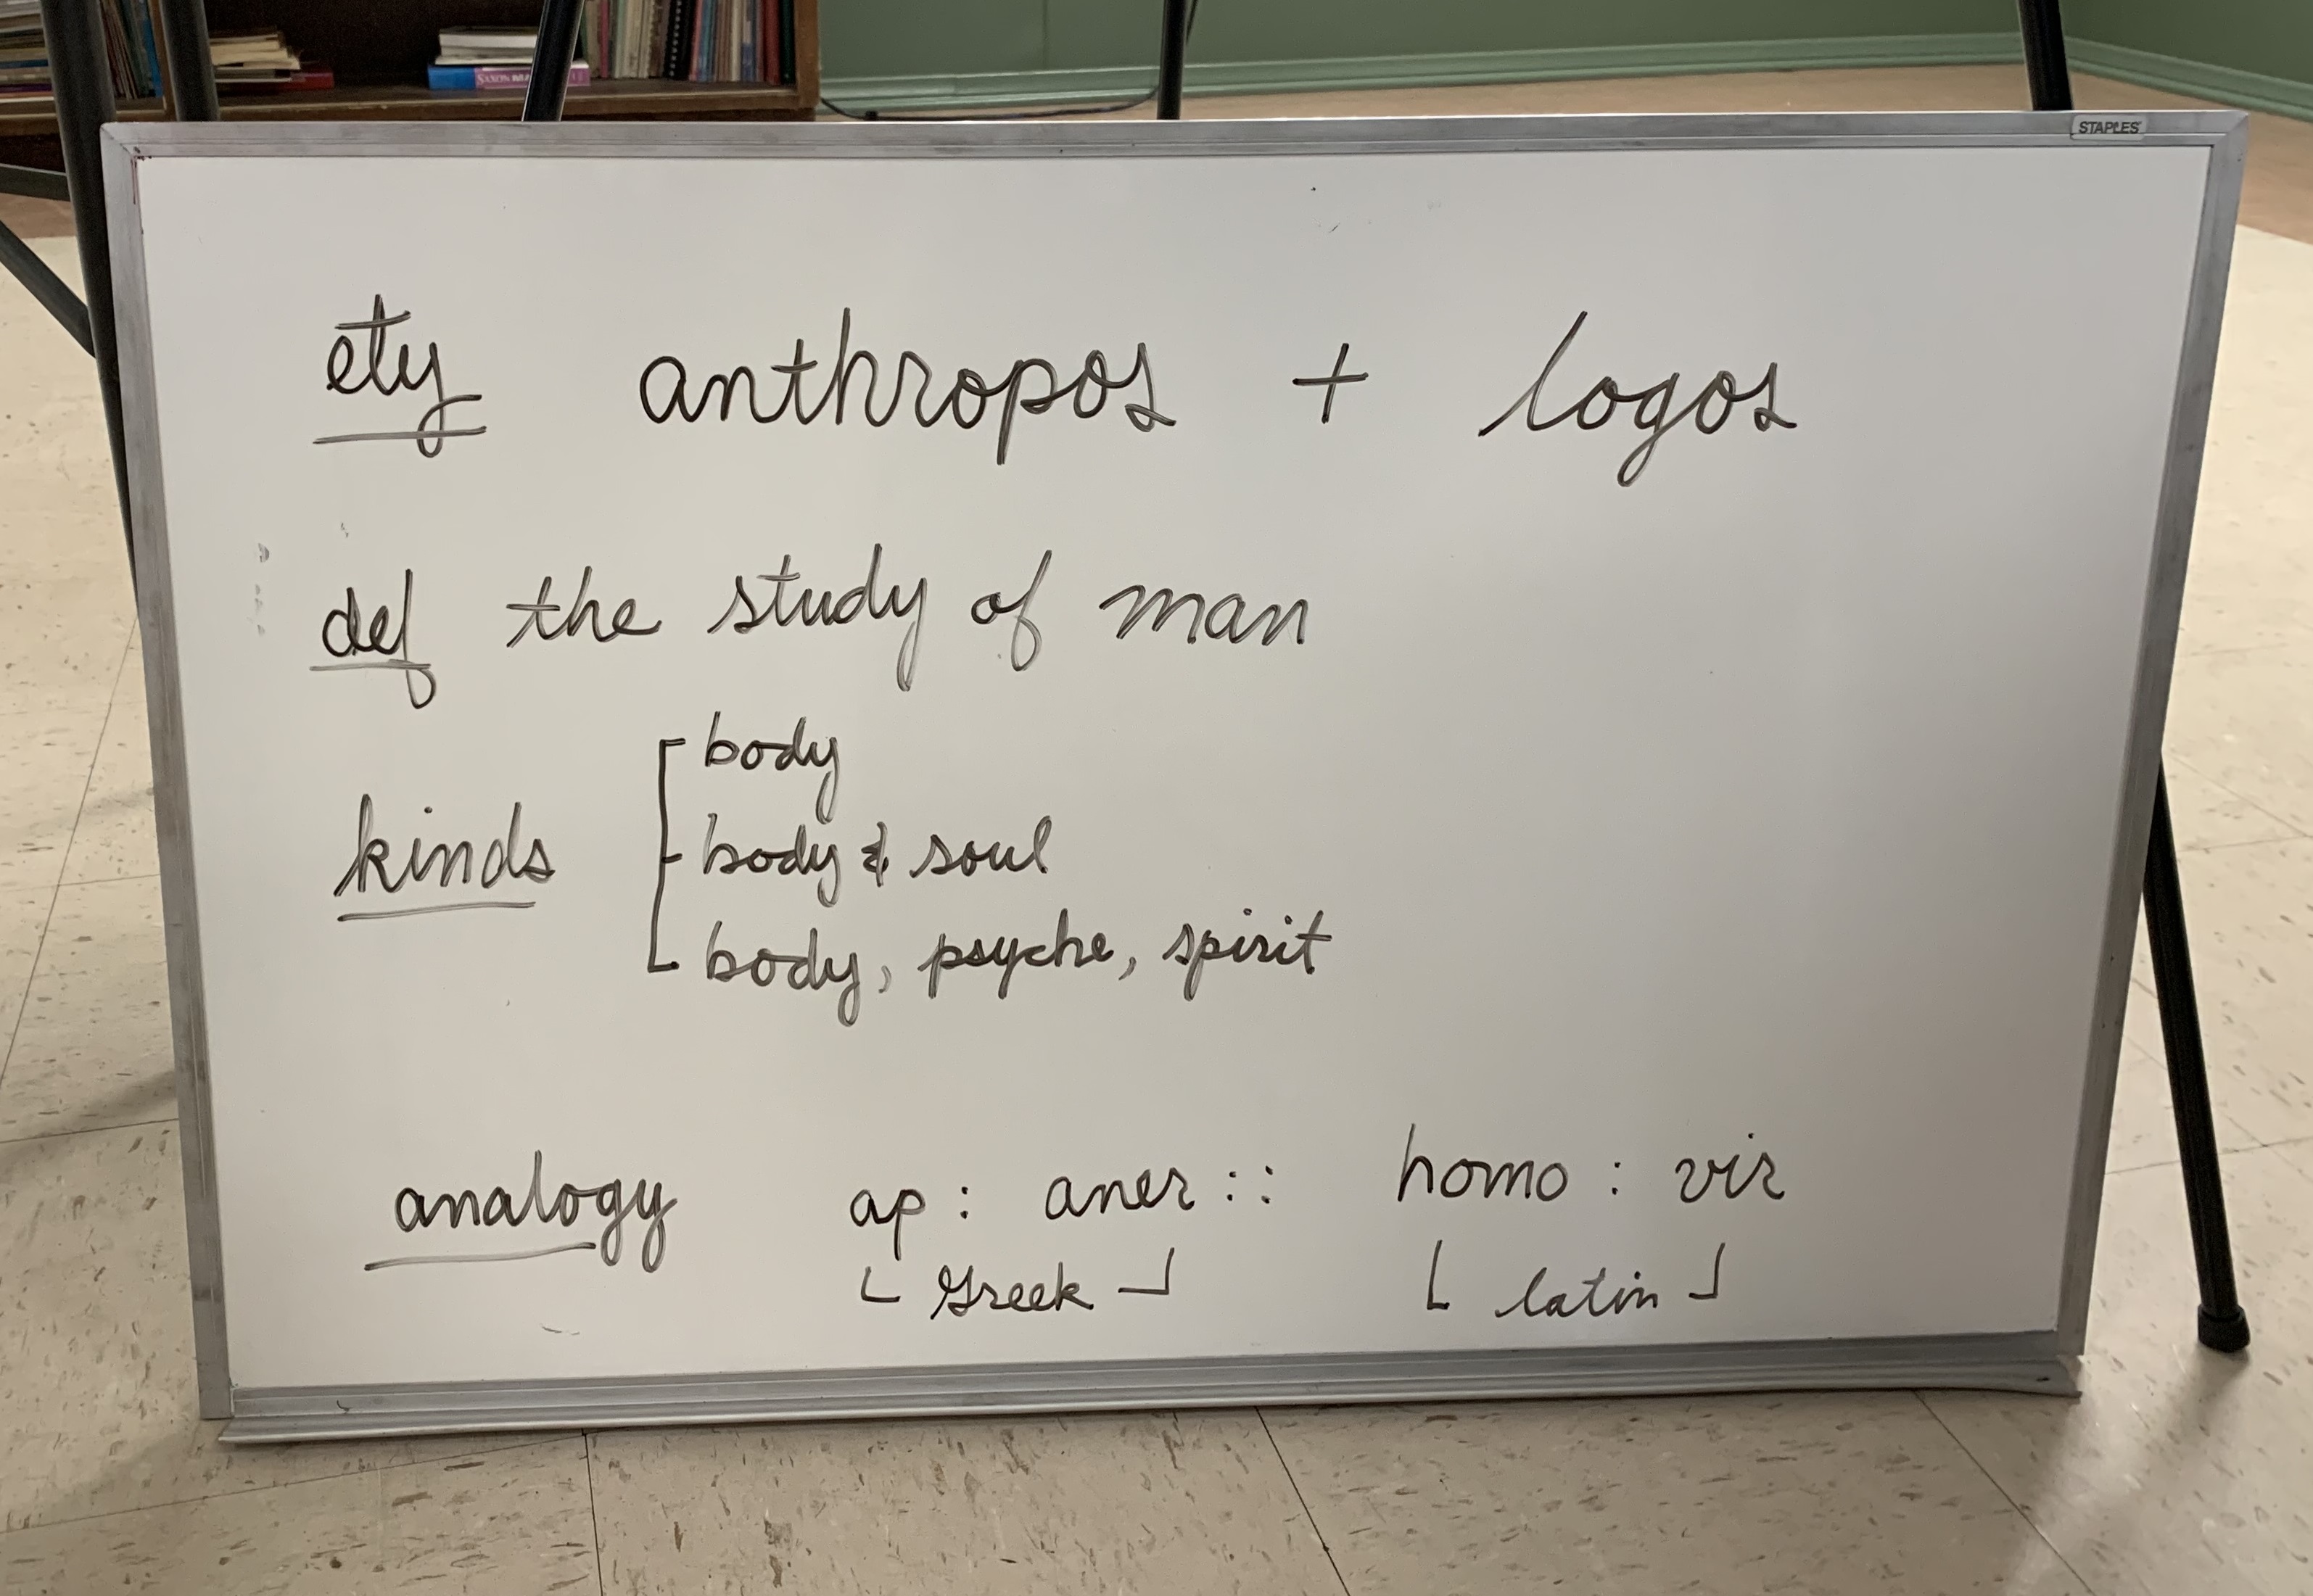 SAXON MATH
STAPLES
ety anthropos + logos
def the study of man
body
kinds body & soul
body, psyche, spirit
analogy ap : aner :: homo : vir
Greek latin